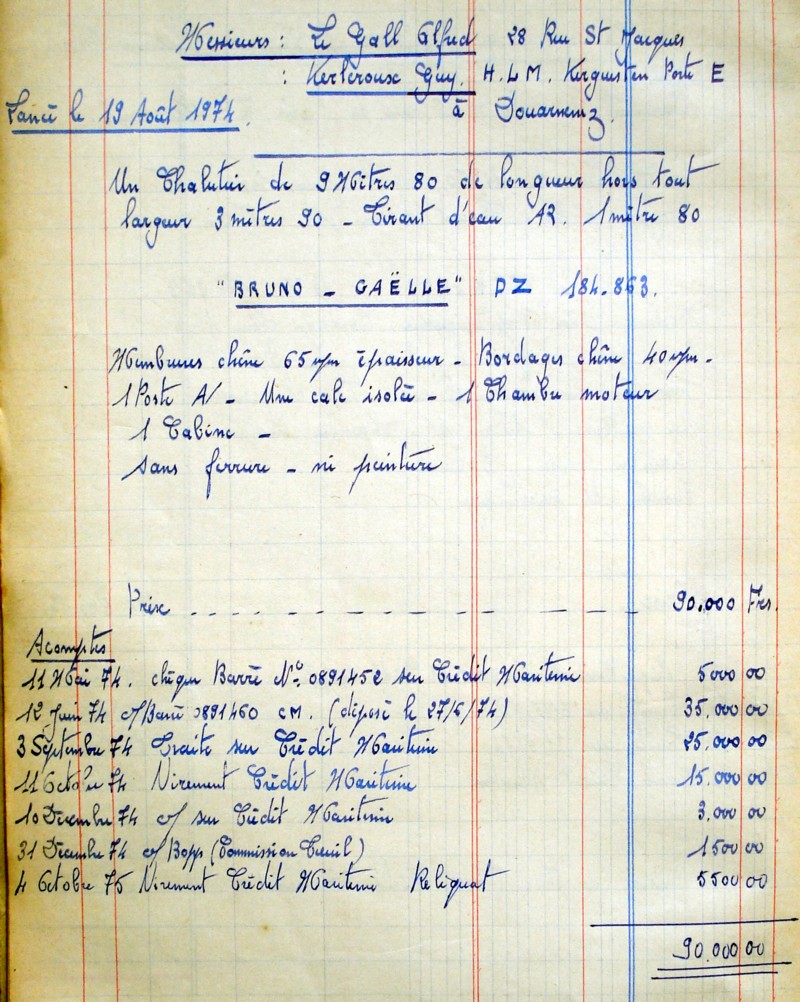 Messieurs : Le Gall Alfred 28 Rue St Jacques
: Kerleroux Guy. H.L.M. Kerguesten Porte E
Lancé le 19 Août 1974. à Douarnenez.
Un Chalutier de 9 Mètres 80 de longueur hors tout
largeur 3 mètres 90 - Tirant d'eau AR. 1 mètre 80
"BRUNO - GAËLLE" DZ 184.863.
Membrures chêne 65 m/m épaisseur - Bordages chêne 40 m/m -
1 Poste A/ - Une cale isolée - 1 Chambre moteur
1 Cabine -
sans ferrure - ni peinture
Prix 90.000 Frs.
Acomptes
11 Mai 74. chèque Barré N° 0891452 sur Crédit Maritime 5000 00
12 Juin 74 c/Barré 0891460 CM. (déposé le 27/6/74) 35.000 00
3 Septembre 74 Traite sur Crédit Maritime 25.000 00
11 Octobre 74 Virement Crédit Maritime 15.000 00
10 Décembre 74 c/ sur Crédit Maritime 3.000 00
31 Décembre 74 c/ Bopp (Commission Treuil) 1500 00
4 Octobre 75 Virement Crédit Maritime Reliquat 5500 00
90.000 00